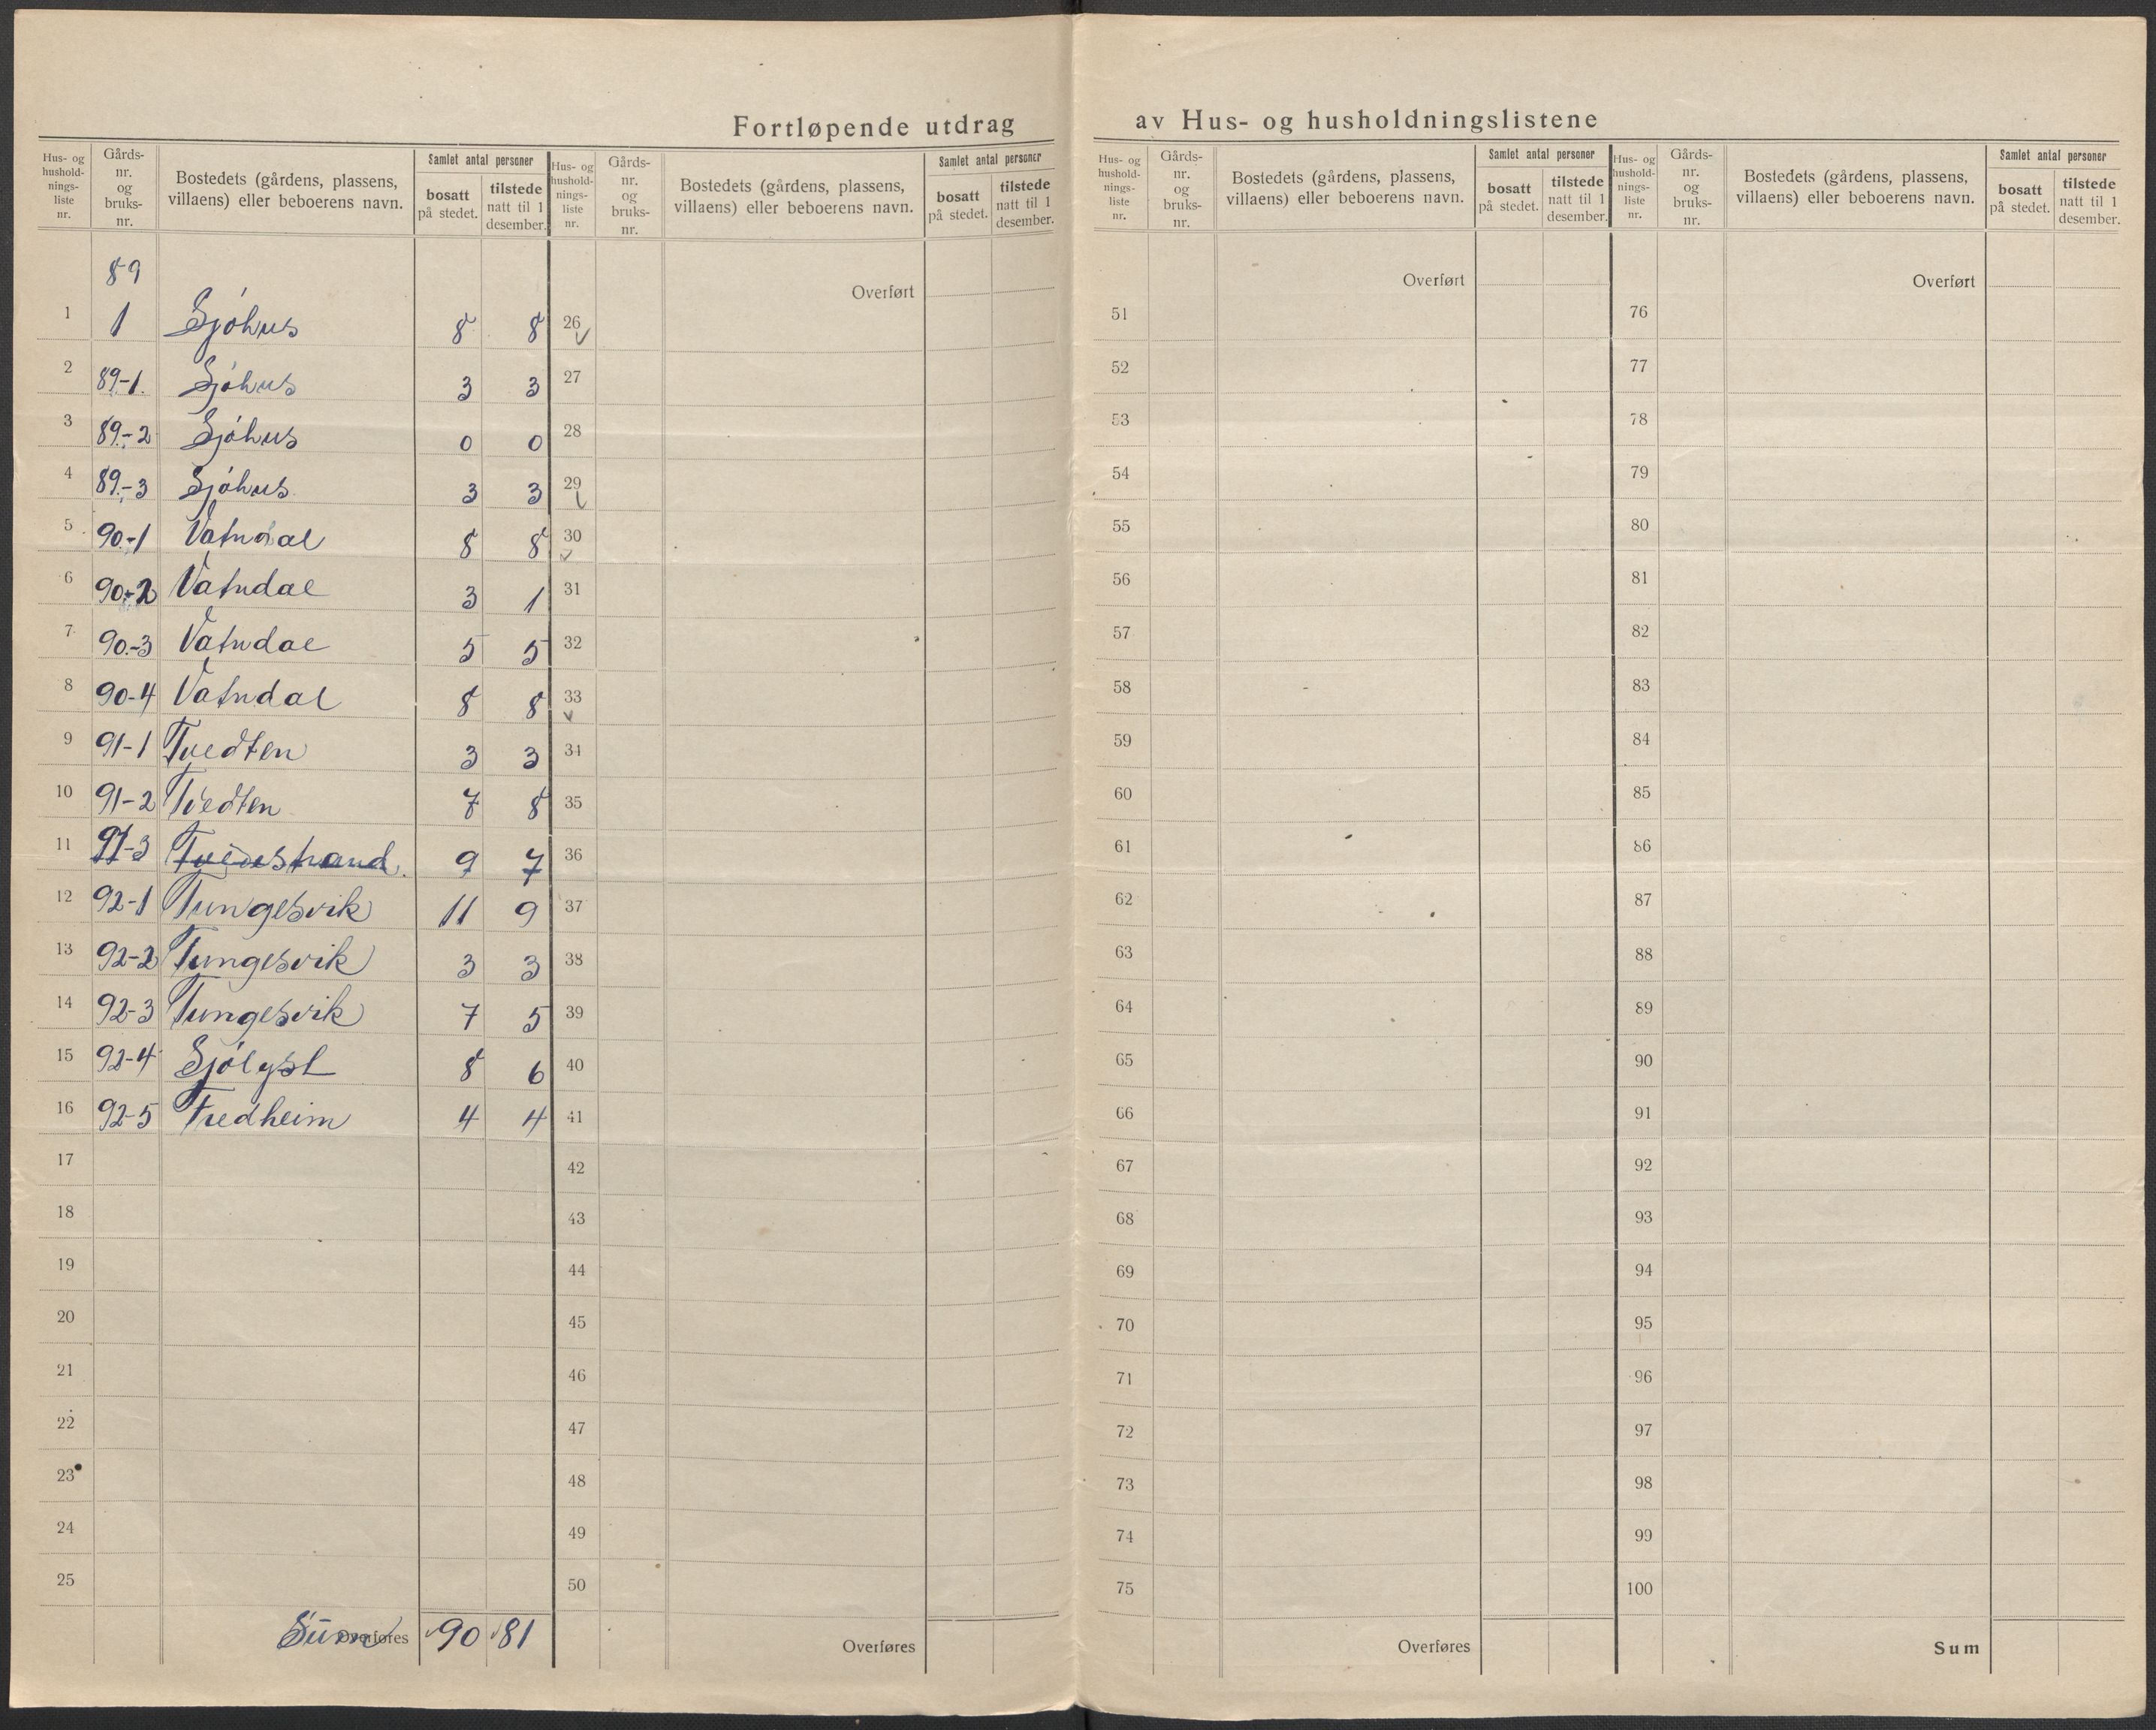 Fortløpende utdrag av Hus- og husholdningslistene
Hus- og hushold- nings- liste nr.
Gårds- nr. og bruks- nr.
Bostedets (gårdens, plassens, villaens) eller beboerens navn.
Samlet antal personer
bosatt på stedet.
tilstede natt til 1 desember.
Hus- og hushold- nings- liste nr.
Gårds- nr. og bruks- nr.
Bostedets (gårdens, plassens, villaens) eller beboerens navn.
Samlet antal personer
bosatt på stedet.
tilstede natt til 1 desember.
Hus- og hushold- nings- liste nr.
Gårds- nr. og bruks- nr.
Bostedets (gårdens, plassens, villaens) eller beboerens navn.
Samlet antal personer
bosatt på stedet.
tilstede natt til 1 desember.
Hus- og hushold- nings- liste nr.
Gårds- nr. og bruks- nr.
Bostedets (gårdens, plassens, villaens) eller beboerens navn.
Samlet antal personer
bosatt på stedet.
tilstede natt til 1 desember.
89
1 1 Sjóhus 8 8
2 89.-1. Sjóhus 3 3
3 89.-2 Sjóhus 0 0
4 89.-3 Sjóhus 3 3
5 90.-1 Vatndal 8 8
6 90.-2 Vatndal 3 1
7 90.-3 Vatndal 5 5
8 90-4 Vatndal 8 8
9 91-1 Tvedten 3 3
10 91-2 Tvedten 7 8
11 91-3 Tvedestrand. 9 7
12 92-1 Tungesvik 11 9
13 92-2 Tungesvik 3 3
14 92-3 Tungesvik 7 5
15 92-4 Sjólyst 8 6
16 92-5 Fredheim 4 4
17
18
19
20
21
22
23
24
25
Overføres Sum 90 81
Overført
26
27
28
29
30
31
32
33
34
35
36
37
38
39
40
41
42
43
44
45
46
47
48
49
50
Overføres
Overført
51
52
53
54
55
56
57
58
59
60
61
62
63
64
65
66
67
68
69
70
71
72
73
74
75
Overføres
Overført
76
77
78
79
80
81
82
83
84
85
86
87
88
89
90
91
92
93
94
95
96
97
98
99
100
Sum